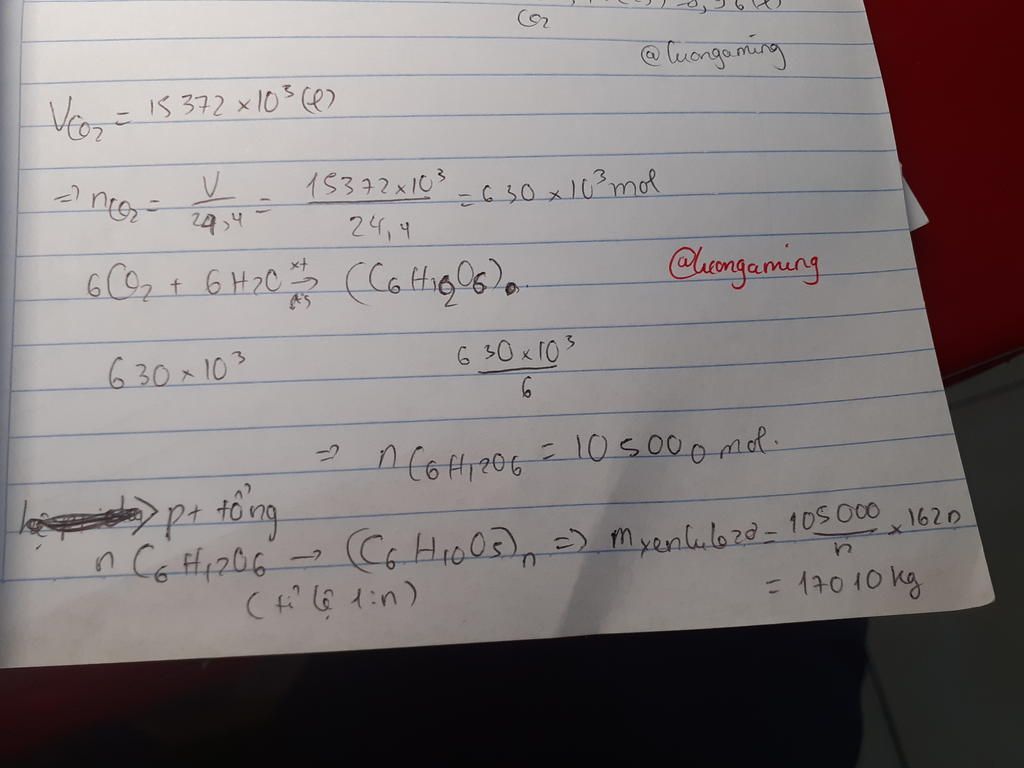 CO2
@luongaming
VCO2 = 15372 x 10³ (l)
=> nCO2 = V/24,4 = 15372 x 10³/24,4 = 630 x 10³ mol
6CO2 + 6H2O xt → as (C6H12O6).
@luongaming
630 x 10³ 630 x 10³/6
=> nC6H12O6 = 105000 mol.
pt tổng
nC6H12O6 → (C6H10O5)n => mxenlulozo = 105000/n x 162n
(tỉ lệ 1:n) = 17010 kg